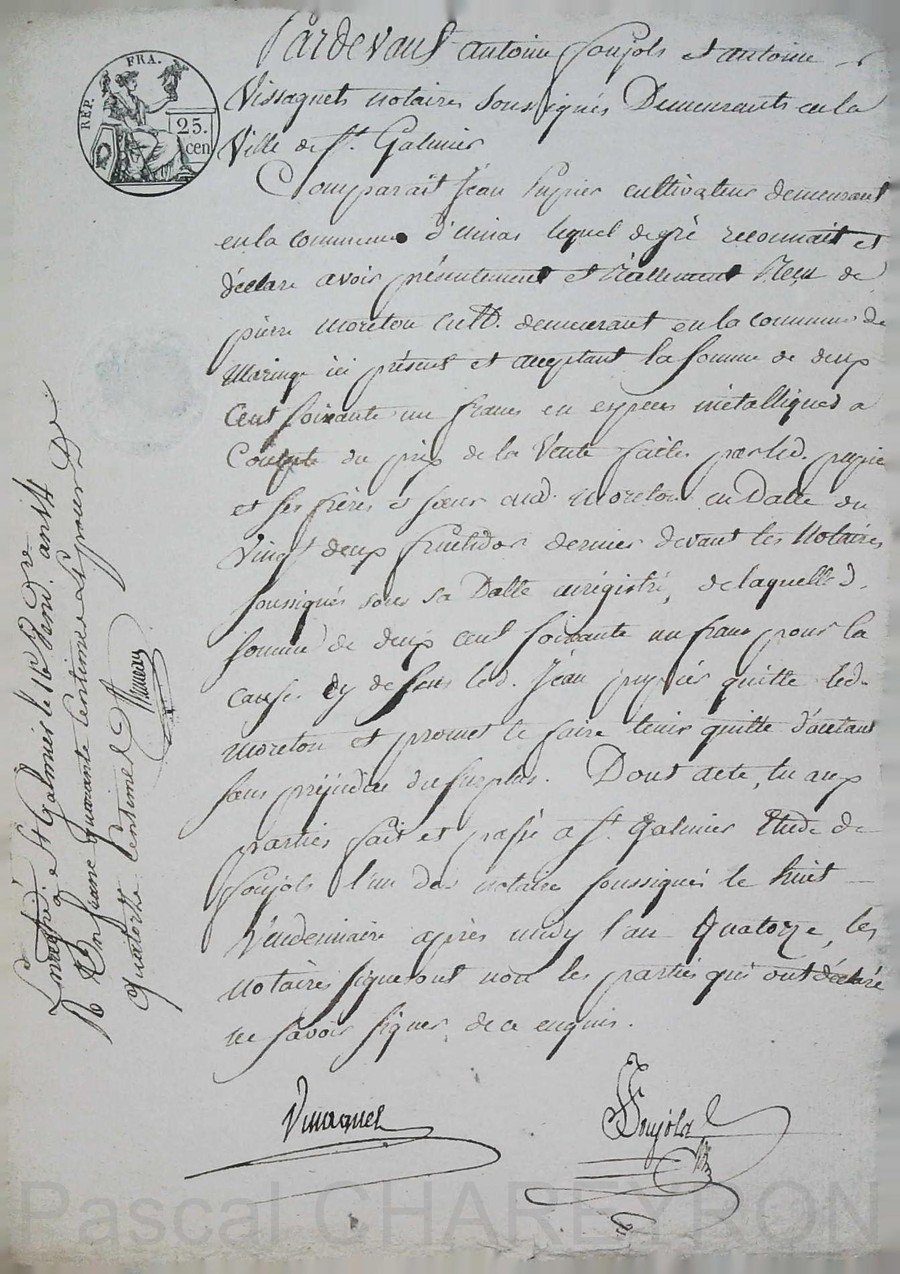 RÉP. FRA.
25.
cen
Pardevant antoine Soujols et antoine
Vissaguets notaires Soussignés Demeurants en la
Ville de St. Galmier
Comparait Jean Pupier cultivateur demeurant
en la commune lequel de gré reconnait et
déclare avoir présentement et Réellement Reçu de
pierre moreton cult. demeurant en la commune de
Maringe ici présent et acceptant la somme de deux
Cent soixante un francs en espèces métalliques a
Compte du prix de la Vente faitte par led. pupie
et ses frères et soeur aud. moreton en Datte du
Vingt deux fructidor dernier devant les Notaires
soussignés sous sa Datte enregistré, de laquelle d.
somme de deux cent soixante un franc pour la
cause dy dessus led. Jean pupier quitte led.
moreton et promet le faire tenir quitte d'autant
sans préjudice du surplus. Dont acte, lu aux
parties fait et passé a St. Galmier Etude de
Soujols l'un des notaire soussignés le huit
Vendemiaire après midy l'an Quatorze, les
notaires signeront non les parties qui ont déclaré
ne savoir signer de ce enquis.
Vissaguet
Soujols
Enregtré a St Galmier le 16 Vend. an 14
R Un franc quarante centimes et pour De
quatorze Centimes
Pascal CHAREYRON